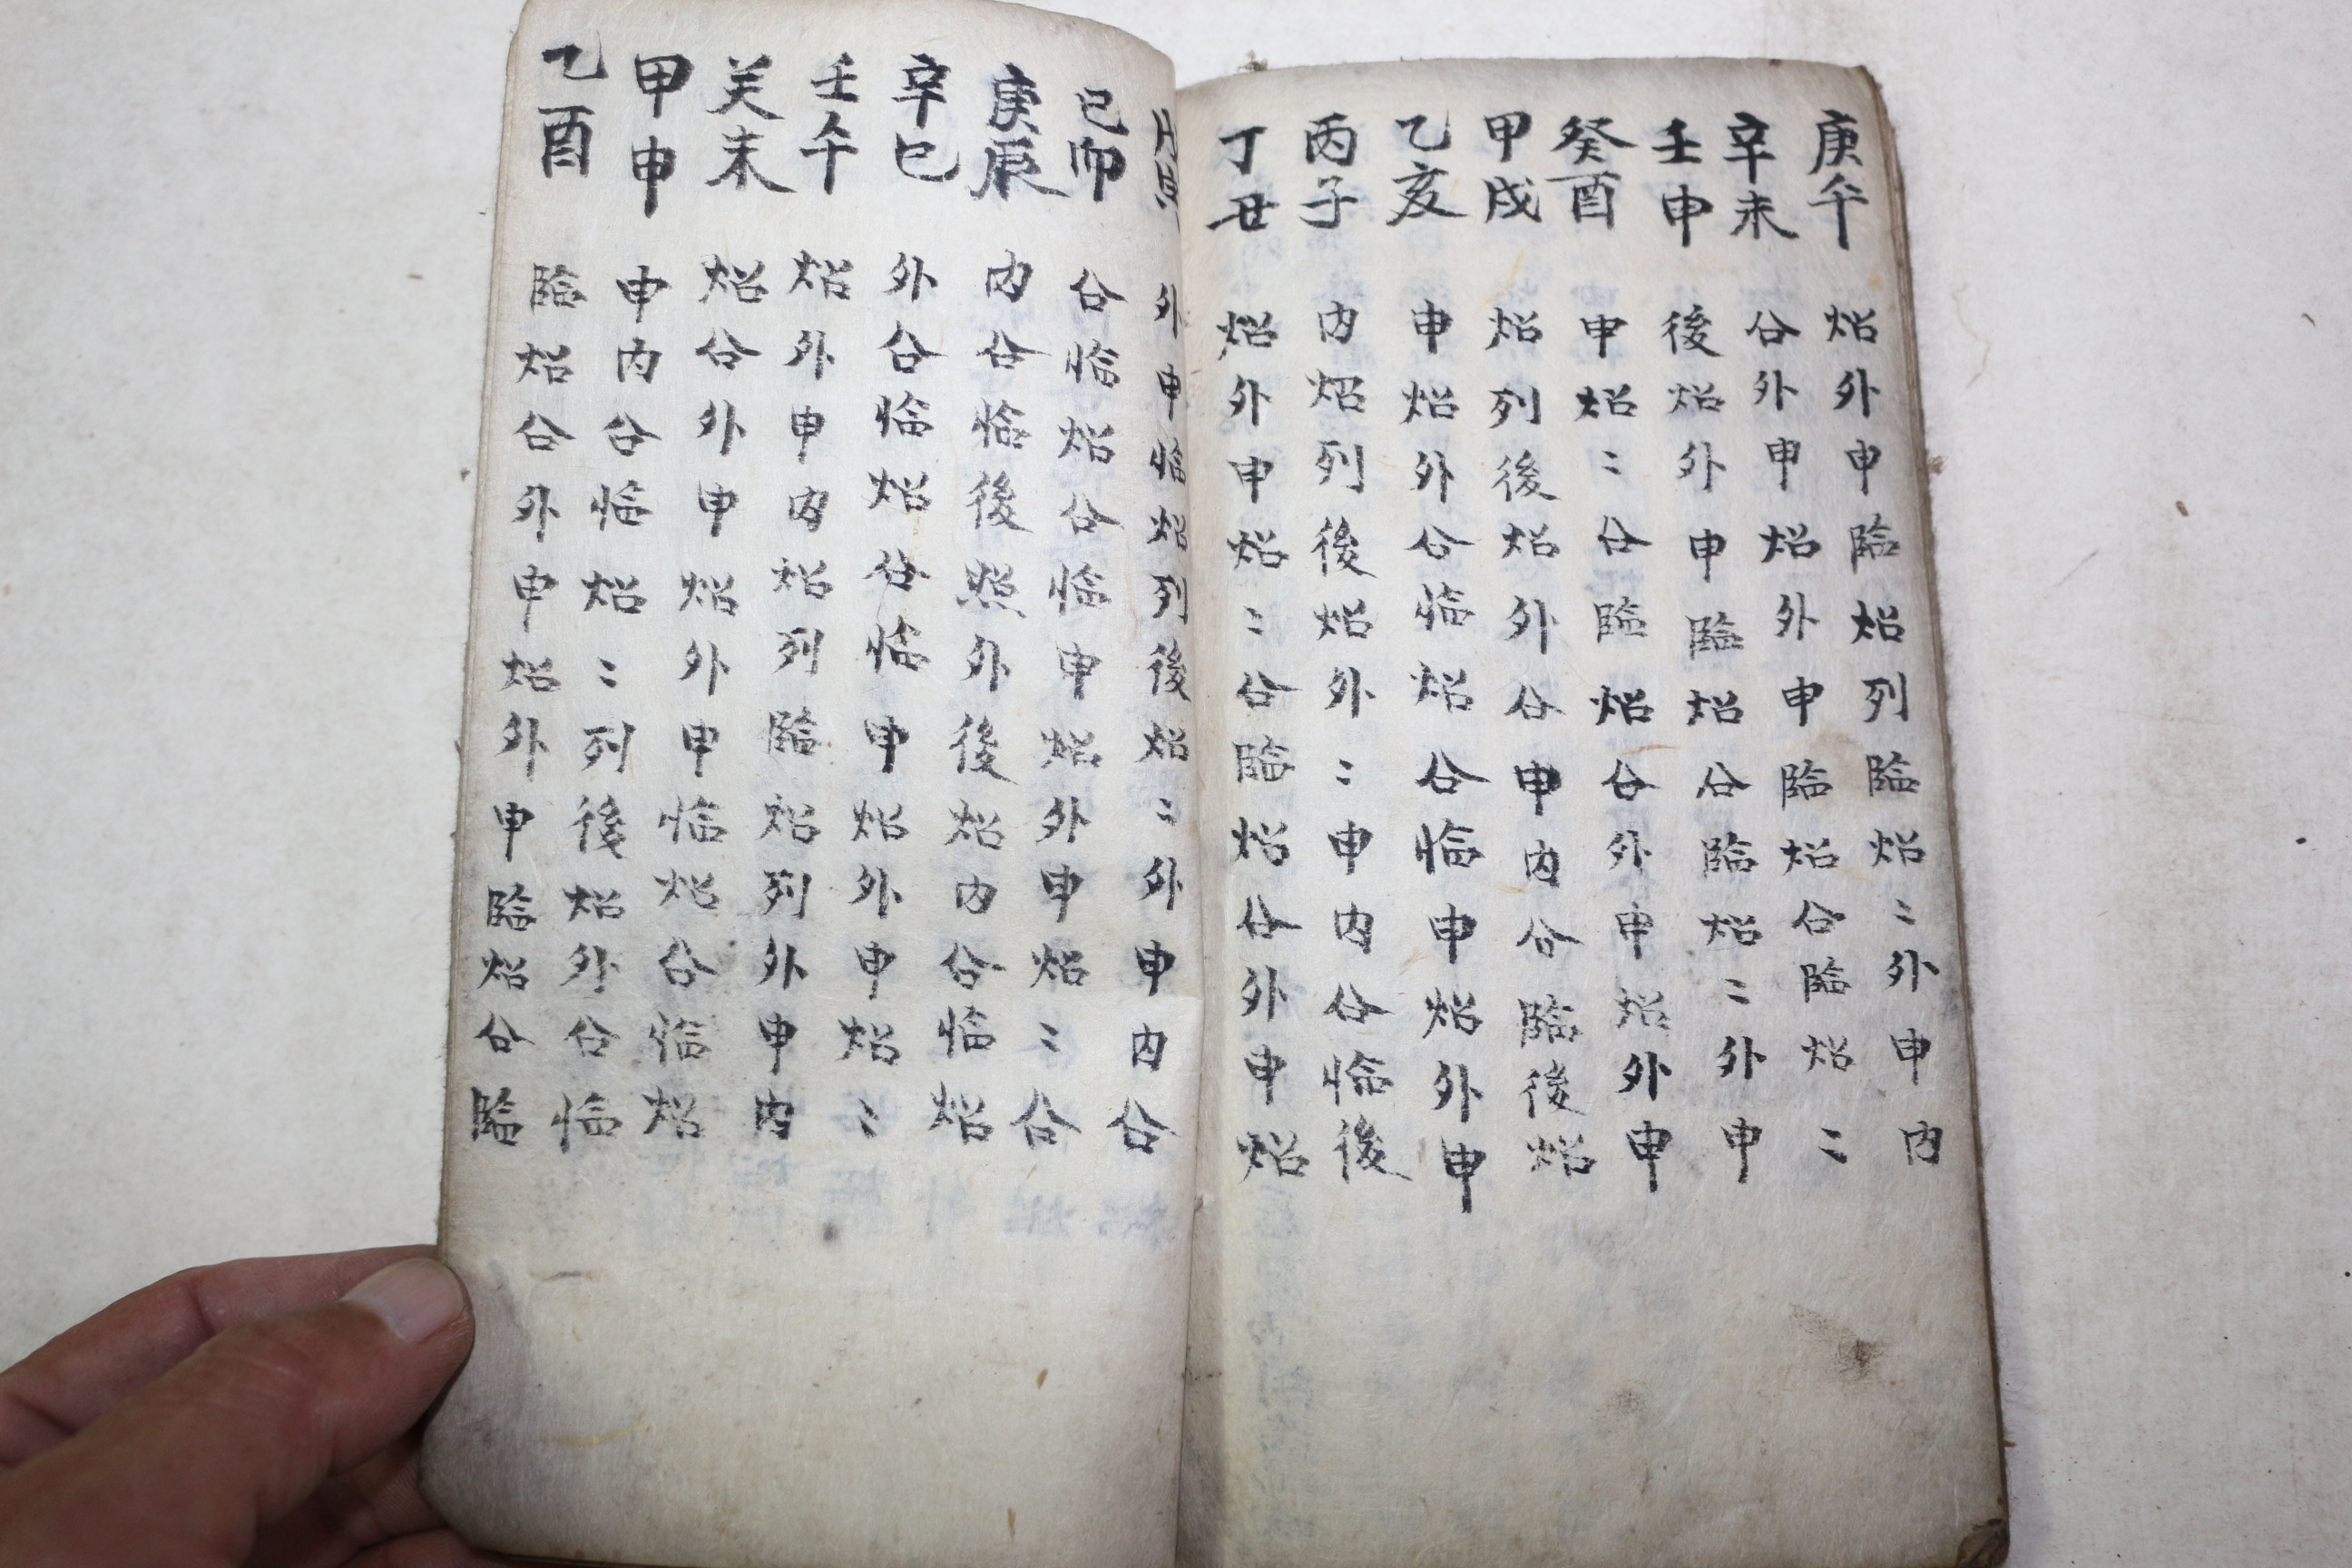 庚午 炤外申臨炤列臨炤〻外申内
辛未 合外申炤外申臨炤合臨炤〻
壬申 後炤外申臨炤合臨炤〻外申
癸酉 申炤〻合臨炤合外申炤外申
甲戌 炤列後炤外合申内合臨後炤
乙亥 申炤外合臨炤合臨申炤外申
丙子 内炤列後炤外〻申内合臨後
丁丑 炤外申炤〻合臨炤合外申炤
外申臨炤列後炤〻外申内合
己卯 合臨炤合臨申炤外申炤〻合
庚辰 内合臨後照外後炤内合臨炤
辛巳 外合臨炤合臨申炤外申炤〻
壬午 炤外申内炤列臨炤列外申内
癸未 炤合外申炤外申臨炤合臨炤
甲申 申内合臨炤〻列後炤外合臨
乙酉 臨炤合外申炤外申臨炤合臨